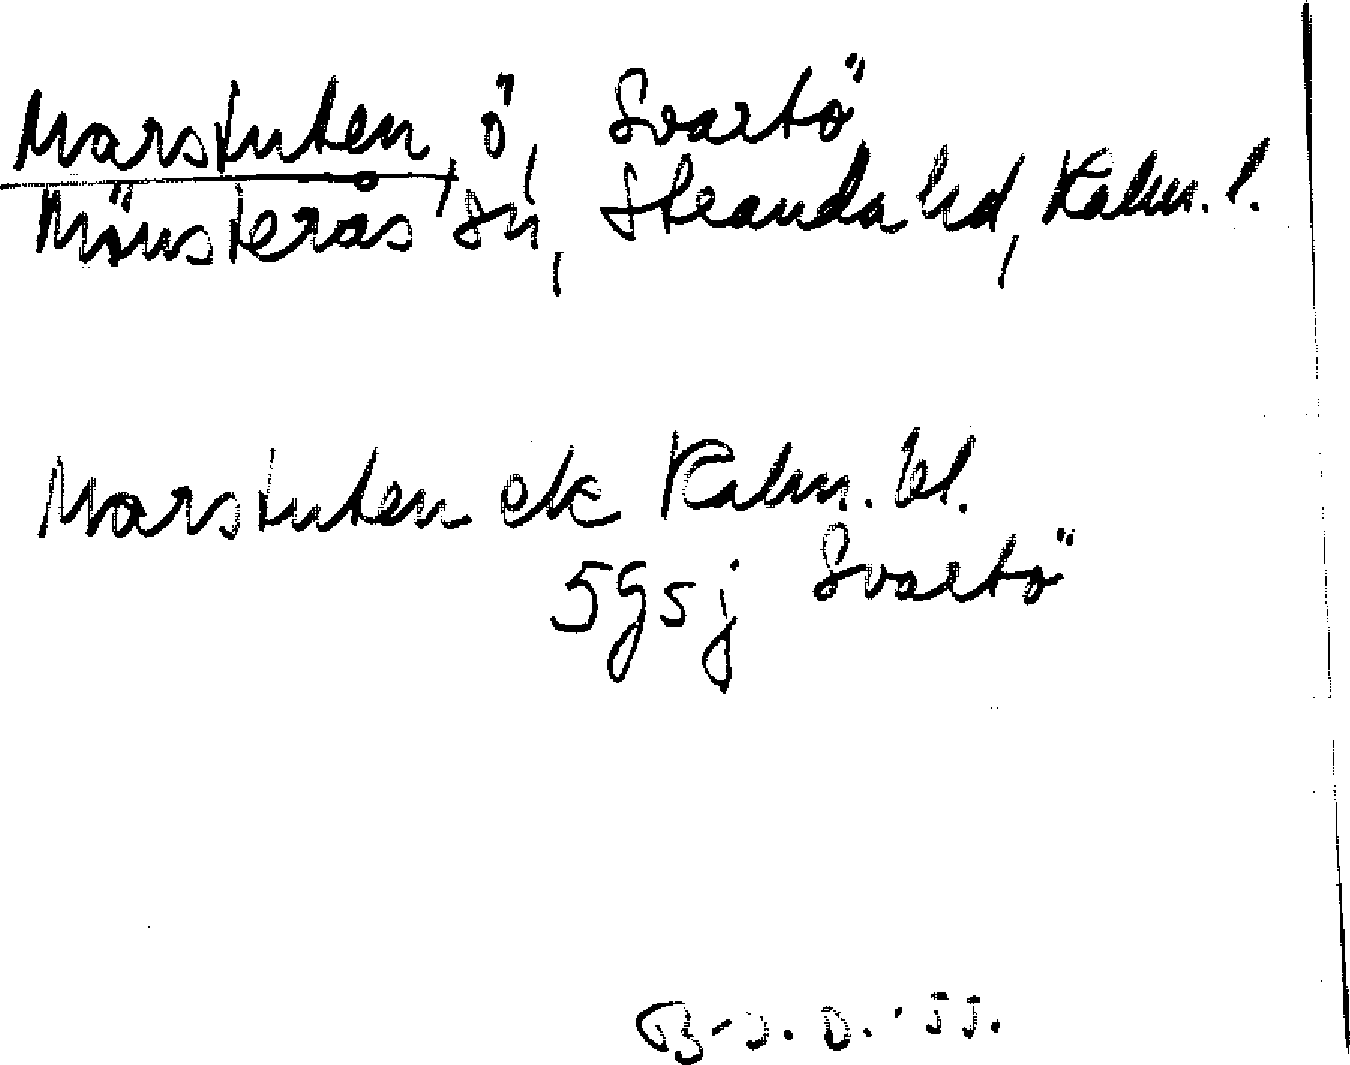 Marstuten, ö, Svartö,
Mönsterås sn, Stranda hd, Kalm. l.
Marstuten ek Kalm. bl.
5g5j Svartö
B-J. D. -55.